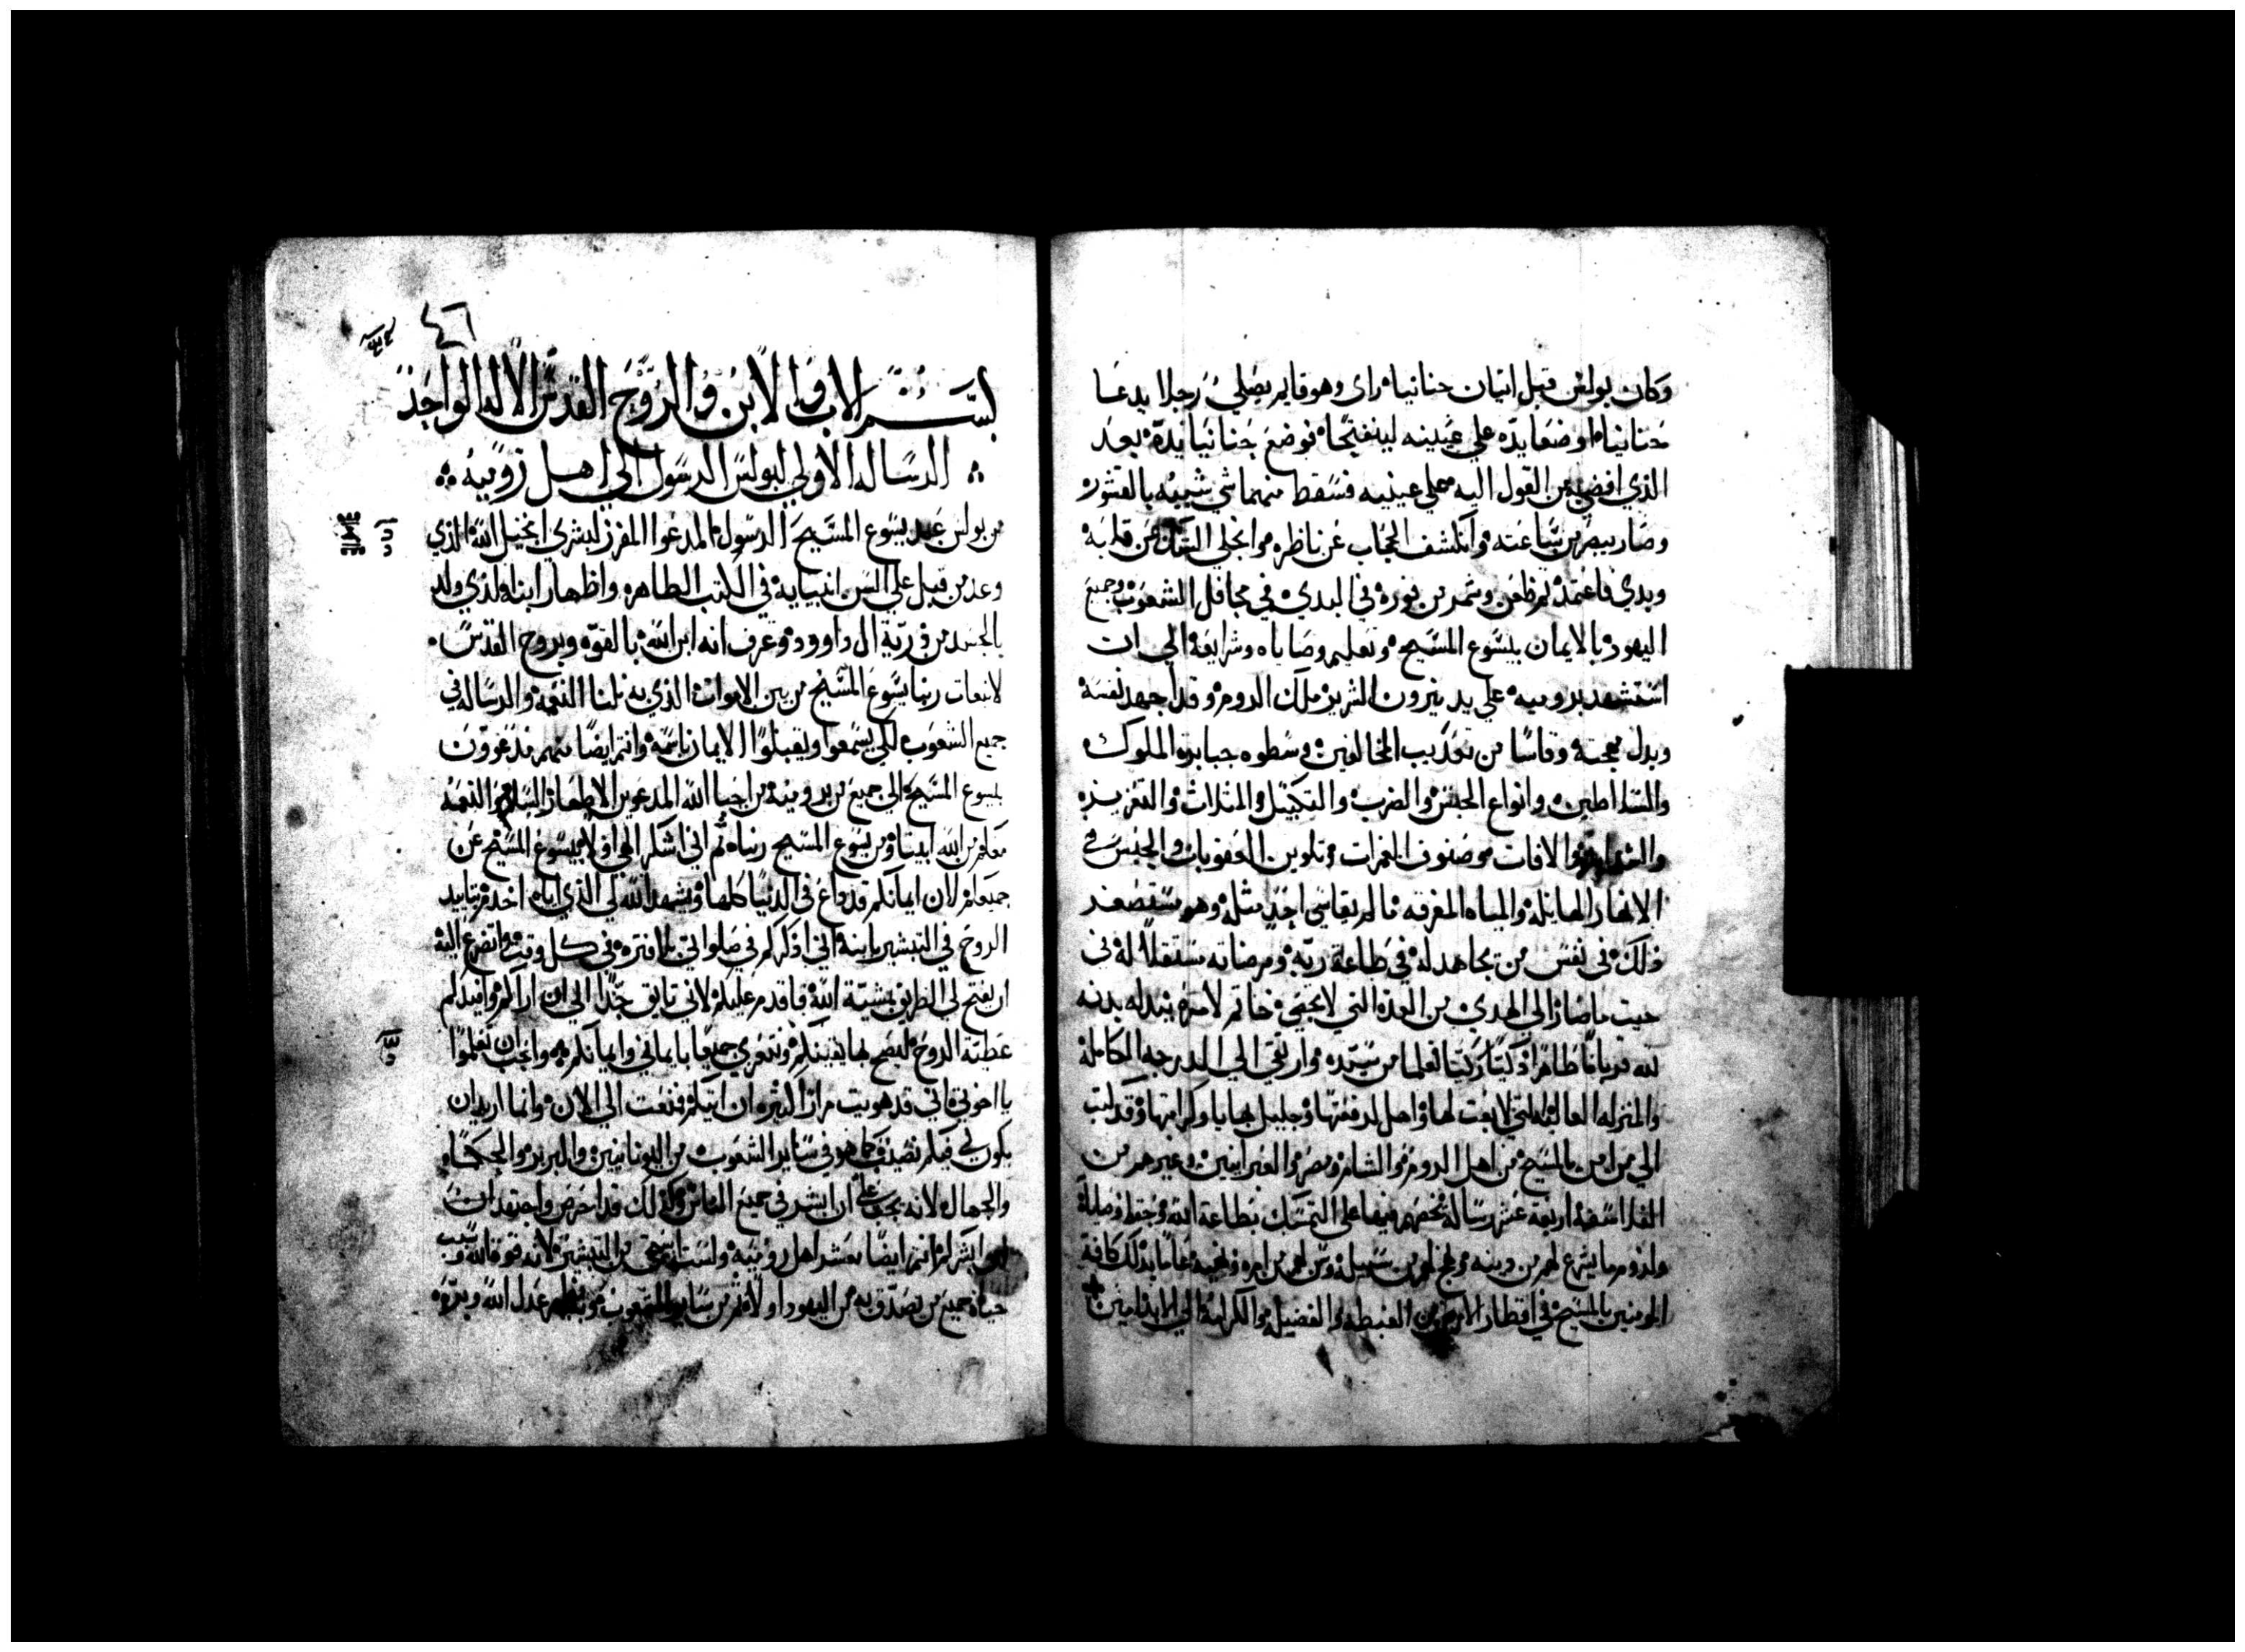 وكان بولس قبل اتيان حنانياه راى وهو قايم يصلي رجلا يدعا
حنانياه اوضعا يده علي عينيه لينفتحا فوضع حنانيا يده بعد
الذي افضي من القول اليه علي عينيه فسقط منهما شي شبيه بالقشور
وصار يبصر من ساعته وانكشف الحجاب عن ناظره وانجلي الشك عن قلبه
وبدي فاعتمد ثم ظعن وشمر من فوره في البدي في محافل الشعوب وجميع
اليهود بالايمان بيسوع المسيح وتعليم وصاياه وشرايعه الي ان
استشهد بروميه علي يد نيرون الشرير ملك الروم وقد اجهد نفسه
وبدل مهجته وقاسا من تعذيب المخالفين وسطوه جبابره الملوك
والسلاطين وانواع الحبس والضرب والتكبيل والمثلاث والتغريب
والافات وصنوف الغمرات وتلوين العقوبات والحبس في
الابار الهايله والمياه المغرقه ما لم يقاسي احد مثله وهو يستصغر
ذلك في نفس من يجاهد له في طاعة ربه ومرضاته مستقلا له في
حيت ما صار الي الهدي من العده التي لا تحصي خاتم لامره ببدله بدنه
لله قربانا طاهرا ذكيا زكيا تعلما من سيده وارتقي الي الدرجه الكامله
والمنزله العاليه التي لابعت لها واصل لرفعتها وجليل بهاياو كرامتها وقد كتب
الي من امن بالمسيح من اهل الروم والشام ومصر والعبرانيين وغيرهم من
الفلاسفه اربعة عشر رساله تحضهم فيها علي التمسك بطاعة الله وحفظ وصاياه
ولزوم ما يشرع لهم من دينه
المومنين بالمسيح في اقطار الارض من الغبطه والفضيله والكرامه الي الابد امين
٤٦
بسم الاب والابن والروح القدس الاله الواحد
الرساله الاولي لبولس الرسول الي اهل روميه
من بولس عبد يسوع المسيح الرسول المدعوا المفرز لبشري انجيل الله الذي
وعد من قبل علي السن انبيايه في الكتب الطاهره واظهار ابنه الذي ولد
بالجسد من ذرية ال داوود وعرف انه ابن الله بالقوه وبروح القدس
لانبعات ربنا يسوع المسيح من بين الاموات الذي به نلنا النعمه والرساله في
جميع الشعوب لكي يسمعوا ويقبلوا الايمان باسمه وانتم ايضا منهم مدعوون
بيسوع المسيح الي جميع من بروميه من احبا الله المدعوين الاطهار السلام والنعمه
معكم من الله ابينا ومن يسوع المسيح ربنا ثم اني اشكر الهي اولا بيسوع المسيح عن
جميعكم لان ايمانكم قد داع في الدنيا كلها ويشهد الله لي الذي اياه اخدم بتاييد
الروح في التبشير بابنه اني اذكركم في صلواتي بلا فتره في كل وقت واتضرع اليه
ان يفتح لي الطريق بمشية الله فاقدم عليكم لاني تايق جدا الي ان اراكم وافيدكم
عطية الروح ليصح بها يقينكم ونتعزي جميعا بايماني وايمانكم واحب ان تعلموا
يا اخوتي اني قد هويت مرارا كثيره ان اتيكم فمنعت الي الان وانما اريد ان
يكون لي فيكم نصيف كما هو في ساير الشعوب من اليونانيين والبربر والحكما
والجهال لانه يجب علي ان ابشر في جميع الناس وكذلك قد احرص واجتهد ان
ابشركم انتم ايضا معشر اهل روميه ولست استحي من التبشير لانه قوة الله وسبب
حياة جميع من يصدق به من اليهود اولا ثم من ساير الشعوب وبه يظهر عدل الله وبره